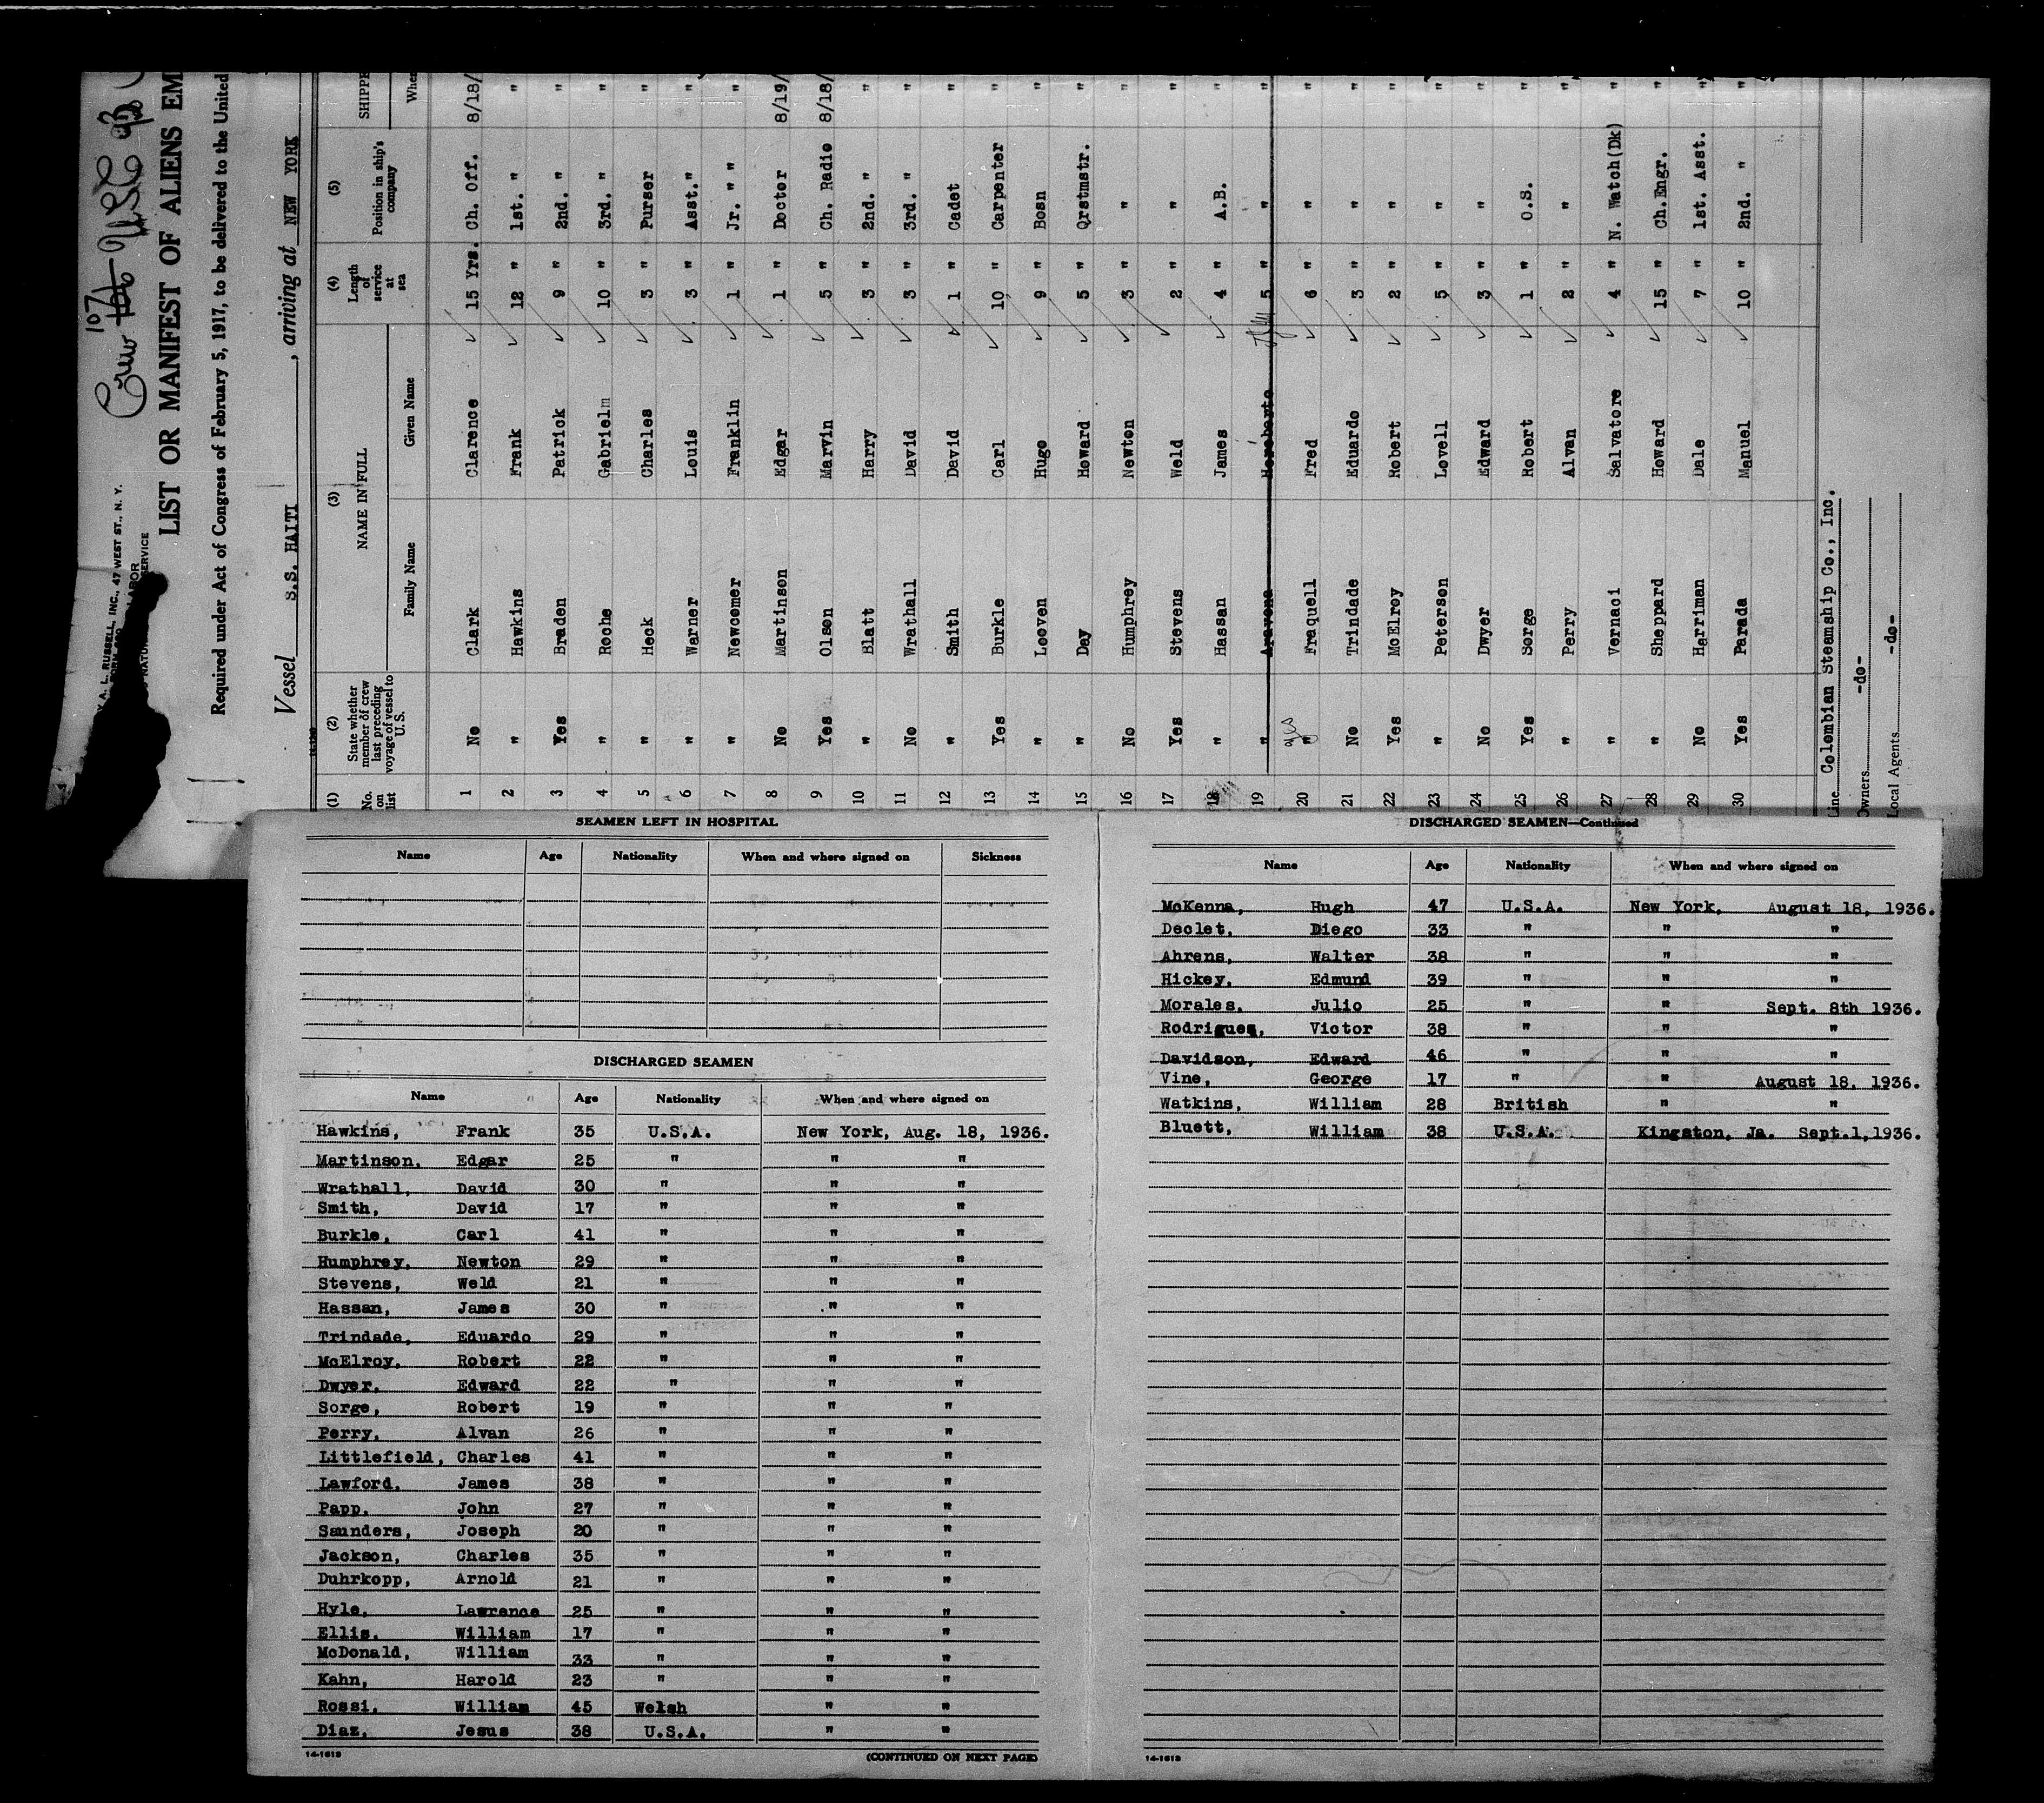 Crew 107 USC
Y A. L. RUSSELL, INC., 47 WEST ST., N. Y.
LABOR
SERVICE
LIST OR MANIFEST OF ALIENS EM
Required under Act of Congress of February 5, 1917, to be delivered to the United
Vessel S.S. HAITI , arriving at NEW YORK
(1) (2) (3) (4) (5)
No. on list State whether member of crew last preceding voyage of vessel to U. S. NAME IN FULL Length of service at sea Position in ship's company SHIPPE
Family Name Given Name When
1 No Clark Clarence 15 Yrs. Ch. Off. 8/18/
2 " Hawkins Frank 12 " 1st. " "
3 Yes Braden Patrick 9 " 2nd. " "
4 " Roche Gabrielm 10 " 3rd. " "
5 " Heck Charles 3 " Purser "
6 " Warner Louis 3 " Asst." "
7 " Newcomer Franklin 1 " Jr. " " "
8 No Martinson Edgar 1 " Doctor 8/19/
9 Yes Olson Marvin 5 " Ch. Radio 8/18/
10 " Blatt Harry 3 " 2nd. " "
11 No Wrathall David 3 " 3rd. " "
12 " Smith David 1 " Cadet "
13 Yes Burkle Carl 10 " Carpenter "
14 " Looven Hugo 9 " Bosn "
15 " Day Howard 5 " Qrstmstr. "
16 No Humphrey Newton 3 " " "
17 Yes Stevens Weld 2 " " "
18 " Hassan James 4 " A.B. "
19 " Aravena Hereberto 5 " " "
20 " yes Fraquell Fred 6 " " "
21 No Trindade Eduardo 3 " " "
22 Yes McElroy Robert 2 " " "
23 " Peterson Lovell 5 " " "
24 No Dwyer Edward 3 " " "
25 Yes Sorge Robert 1 " O.S. "
26 " Perry Alvan 2 " " "
27 " Vernaci Salvatore 4 " N. Watch(Dk) "
28 " Sheppard Howard 15 " Ch.Engr. "
29 No Harriman Dale 7 " 1st. Asst. "
30 Yes Parada Manuel 10 " 2nd. " "
Line Colombian Steamship Co., Inc.
Owners -do-
Local Agents -do-
SEAMEN LEFT IN HOSPITAL
Name Age Nationality When and where signed on Sickness
DISCHARGED SEAMEN
Name Age Nationality When and where signed on
Hawkins, Frank 35 U.S.A. New York, Aug. 18, 1936.
Martinson, Edgar 25 " " "
Wrathall, David 30 " " "
Smith, David 17 " " "
Burkle, Carl 41 " " "
Humphrey, Newton 29 " " "
Stevens, Weld 21 " " "
Hassan, James 30 " " "
Trindade, Eduardo 29 " " "
McElroy, Robert 22 " " "
Dwyer, Edward 22 " " "
Sorge, Robert 19 " " "
Perry, Alvan 26 " " "
Littlefield, Charles 41 " " "
Lawford, James 38 " " "
Papp, John 27 " " "
Saunders, Joseph 20 " " "
Jackson, Charles 35 " " "
Duhrkopp, Arnold 21 " " "
Hyle, Lawrence 25 " " "
Ellis, William 17 " " "
McDonald, William 33 " " "
Kahn, Harold 23 " " "
Rossi, William 45 Welsh " "
Diaz, Jesus 38 U.S.A. " "
14-1613 (CONTINUED ON NEXT PAGE)
DISCHARGED SEAMEN—Continued
Name Age Nationality When and where signed on
McKenna, Hugh 47 U.S.A. New York, August 18, 1936.
Declet, Diego 33 " " "
Ahrens, Walter 38 " " "
Hickey, Edmund 39 " " "
Morales, Julio 25 " " Sept. 8th 1936.
Rodrigues, Victor 38 " " "
Davidson, Edward 46 " " "
Vine, George 17 " " August 18, 1936.
Watkins, William 28 British " "
Bluett, William 38 U.S.A. Kingston, Ja. Sept.1,1936.
14-1613